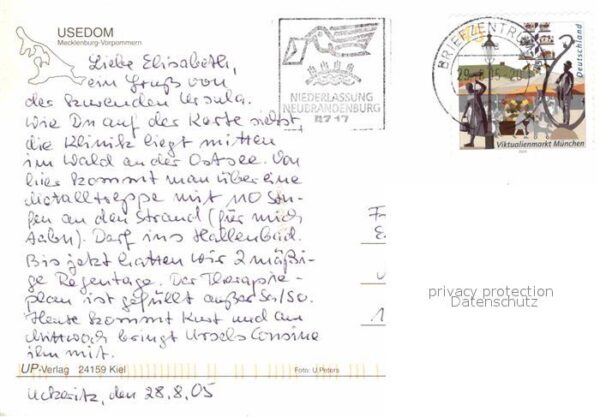 USEDOM
Mecklenburg-Vorpommern
Liebe Elisabeth,
ein Gruß von
der kurenden Ursula.
Wie Du auf der Karte siehst,
die Klinik liegt mitten
im Wald an der Ostsee. Von
hier kommt man über eine
Metalltreppe mit 110 Stu-
fen an den Strand (für mich
Aabn). Darf ins Hallenbad.
Bis jetzt hatten wir 2 mäßi-
ge Regentage. Der Therapie-
plan ist gefüllt außer Sa/So.
Heute kommt Kurt und am
Mittwoch bringt Ursels Cousine
ihn mit.
UP-Verlag 24159 Kiel
Foto: U.Peters
Uckeritz, den 28.8.05
NIEDERLASSUNG
NEUBRANDENBURG
BRIEFZENTRUM
Deutschland
Viktualienmarkt München
privacy protection
Datenschutz